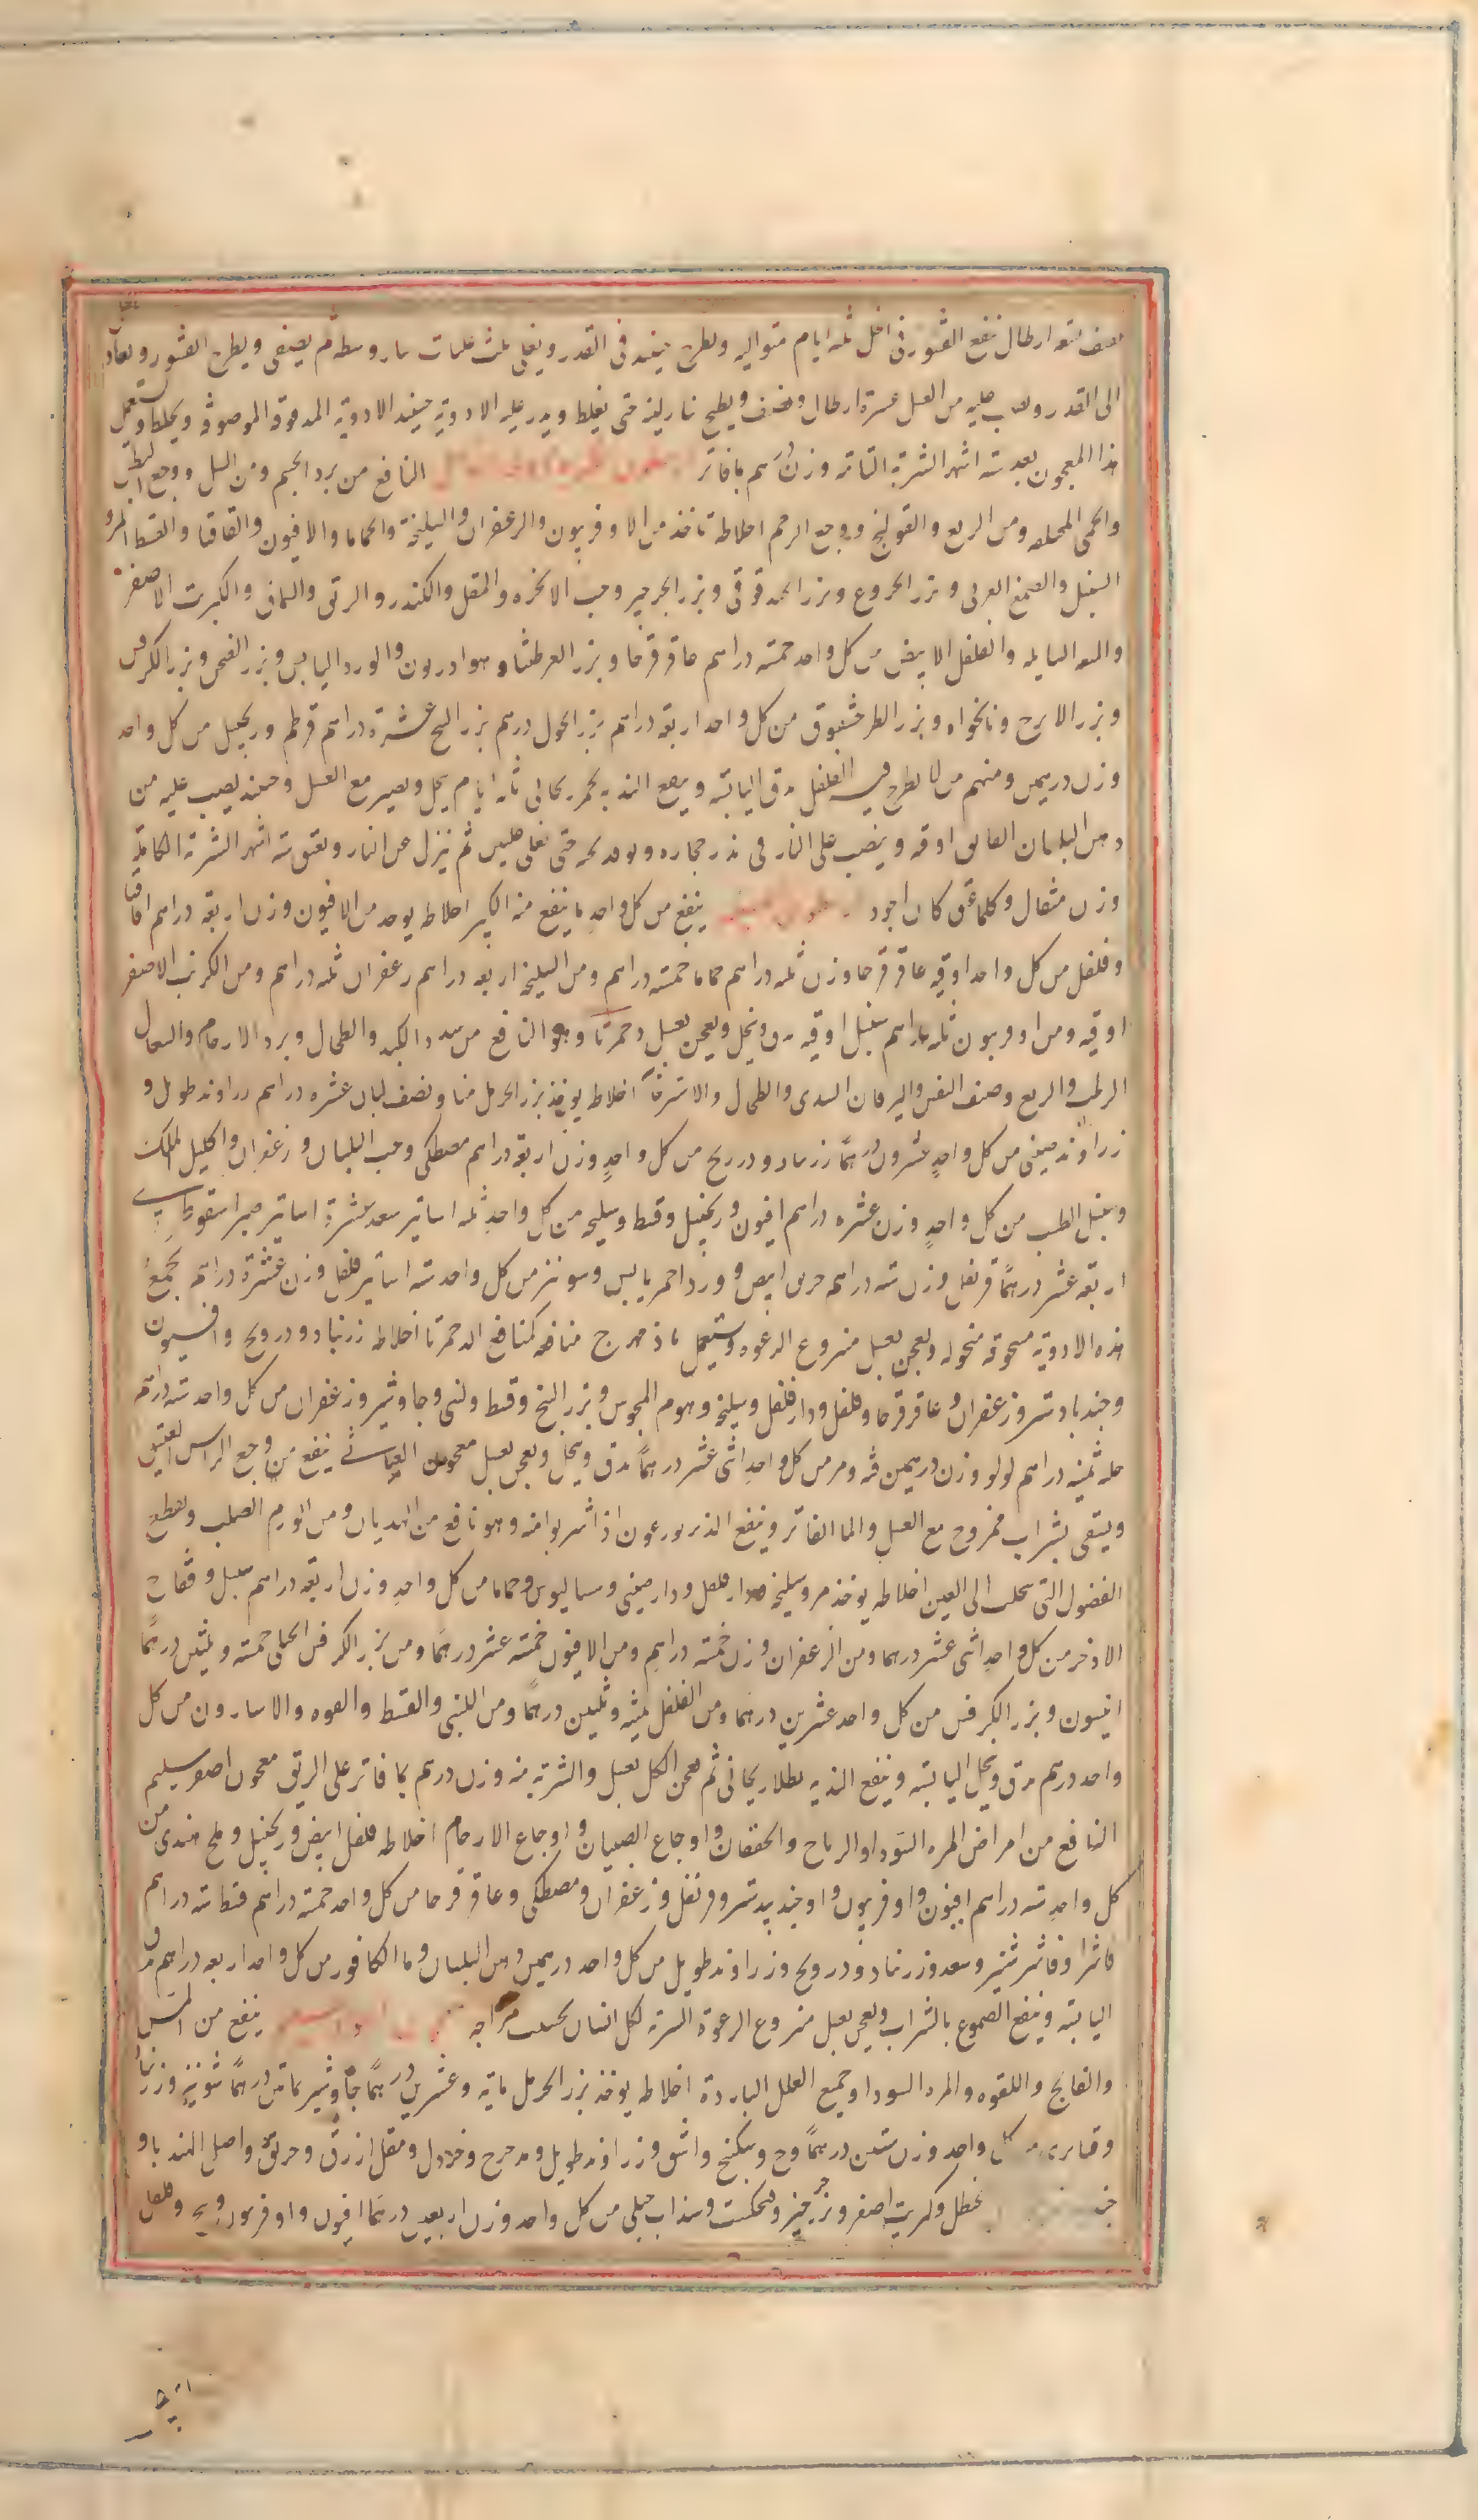 نصف ستة ارطال تنقع القشور فى الخل ثلثه ايام متواليه ويطرح حينئذ فى القدر ويغلى ثلث غليات بنار وسطه ثم يصفى ويطرح القشور ويعاد
الى القدر ويصب عليه من العسل عشرة ارطال ونصف ويطبخ بنار لينه حتى يغلظ ويذر عليه الادوية حينئذ الادوية المدقوقه الموصوفه ويخلط ويستعمل
هذا المعجون بعد ستة اشهر الشربة التامه وزن درهم بما فاتر النافع من برد الجسم ومن السل ووجع البطن
والحمى المختلطه ومن الربع والقولنج ووجع الرحم اخلاطه تاخذ من الاوفربيون والزعفران والسليخة والحماما والافيون والقاقيا والقسط المر و
السنبل والصمغ العربى وبزر الخروع وبزر الحندقوقى وبزر الجرجير وحب الانجره والمقل والكندر والكبريت الاصفر
والفلفل الابيض من كل واحد خمسة دراهم عاقرقرحا وبزر العرطنيثا وهو ادريون والورد اليابس وبزر الفجل وبزر الكرفس
وبزر الاترج ونانخواه وبزر الطرخشقوق من كل واحد اربعة دراهم بزر درهم بزر البنج عشرة دراهم قرطم وزنجبيل من كل واحد
وزن درهمين ومنهم من لا يطرح فيه الفلفل يدق اليابسة وينقع الذايبه بخمر ريحانى ثلثة ايام يحل ويصير مع العسل وحينئذ يصب عليه من
دهن البلسان الفايق اوقيه وينصب على النار فى قدر حجاره ويوقد تحته حتى يغلى غليتين ثم ينزل عن النار ويعتق ستة اشهر الشربة الكاملة
وزن مثقال وكلما عتق كان اجود ينفع من كل واحد ما ينفع منه الكبير اخلاطه يوخذ من الافيون وزن اربعة دراهم اقاقيا
وفلفل من كل واحد اوقيه عاقرقرحا وزن ثلثه دراهم حماما خمسة دراهم ومن السليخه اربعه دراهم زعفران ثلثه دراهم ومن الكبريت الاصفر
اوقيه ومن اوفربيون ثلثه دراهم سنبل اوقيه يدق وينخل ويعجن بعسل دحمرثا وهو النافع من سدد الكبد والطحال وبرد الارحام والسعال
الرطب والربع وضيق النفس واليرقان السددى والطحال والاسترخا اخلاطه يوخذ بزر الحرمل منا ونصف لبان عشره دراهم زراوند طويل و
زراوند صينى من كل واحد عشرون درهما زرنباد ودرونج من كل واحد وزن اربعة دراهم مصطكى وحب البلسان وزعفران واكليل الملك
وسنبل الطيب من كل واحد وزن عشره دراهم افيون وزنجبيل وقسط وسليخه من كل واحد ثلثه اساتير سعد عشرة اساتير صبر اسقوطرى
اربعة عشر درهما قرنفل وزن ستة دراهم خربق ابيض وورد احمر يابس وشونيز من كل واحد ستة اساتير فلفل وزن عشرة دراهم يجمع
هذه الادوية مسحوقه منخوله ويعجن بعسل منزوع الرغوه ويستعمل باذمهرج منافعه كمنافع الدحمرثا اخلاطه زرنباد ودرونج وافيون
وجندبادستر وزعفران وعاقرقرحا وفلفل ودارفلفل وسليخه وهوم المجوس وبزر البنج وقسط ولبنى وجاوشير وزعفران من كل واحد ستة دراهم
ثمنيه دراهم لولو وزن درهمين قنه ومر من كل واحد اثنى عشر درهما يدق وينخل ويعجن بعسل معجون العباسى ينفع من وجع الراس العتيق
ويسقى بشراب ممزوج مع العسل والما الفاتر وينفع الذين يورعون اذا شربوا منه وهو نافع من الهذيان ومن الورم الصلب ويقطع
الفضول التى تتحلب الى العين اخلاطه يوخذ مر وسليخه ودارفلفل ودارصينى وسساليوس وحماما من كل واحد وزن اربعة دراهم سنبل وفقاح
الاذخر من كل واحد اثنى عشر درهما ومن الزعفران وزن خمسة دراهم ومن الافيون خمسة عشر درهما ومن بزر الكرفس الجبلى خمسة وثلثين درهما
انيسون وبزر الكرفس من كل واحد عشرين درهما ومن الفلفل ثلثه وثلثين درهما ومن اللبنى والقسط والفوه والاسارون من كل
واحد درهم يدق وينخل اليابسة وينقع الذايبه بطلا ريحانى ثم يعجن الكل بعسل والشربة منه وزن درهم بما فاتر على الريق معجون اصفر سليم
النافع من امراض المره السودا والرياح والخفقان واوجاع الصبيان واوجاع الارحام اخلاطه فلفل ابيض وزنجبيل وملح هندى من
كل واحد ستة دراهم افيون واوفربيون وجندبيدستر وقرنفل وزعفران ومصطكى وعاقرقرحا من كل واحد خمسة دراهم قسط ستة دراهم
فاشرا وفاشرشنين وسعد وزرنباد ودرونج وزراوند طويل من كل واحد درهمين ودهن البلسان وما الكافور من كل واحد اربعه دراهم يدق
اليابسة وينقع الصموغ بالشراب ويعجن بعسل منزوع الرغوة الشربة لكل انسان بحسب مزاجه ينفع من المس
والفالج واللقوه والمره السودا وجميع العلل الباردة اخلاطه يوخذ بزر الحرمل مايه وعشرين درهما جاوشير ماتين درهما شونيز وزرنباد
كل واحد وزن ستين درهما وج وسكبنج واشق وزراوند طويل ومدحرج وخردل ومقل ازرق وحربق واصل الهندبا و
حنظل وكبريت اصفر وبزر جرجير وفنجنكشت وسذاب جبلى من كل واحد وزن اربعين درهما افيون واوفربيون وفلفل